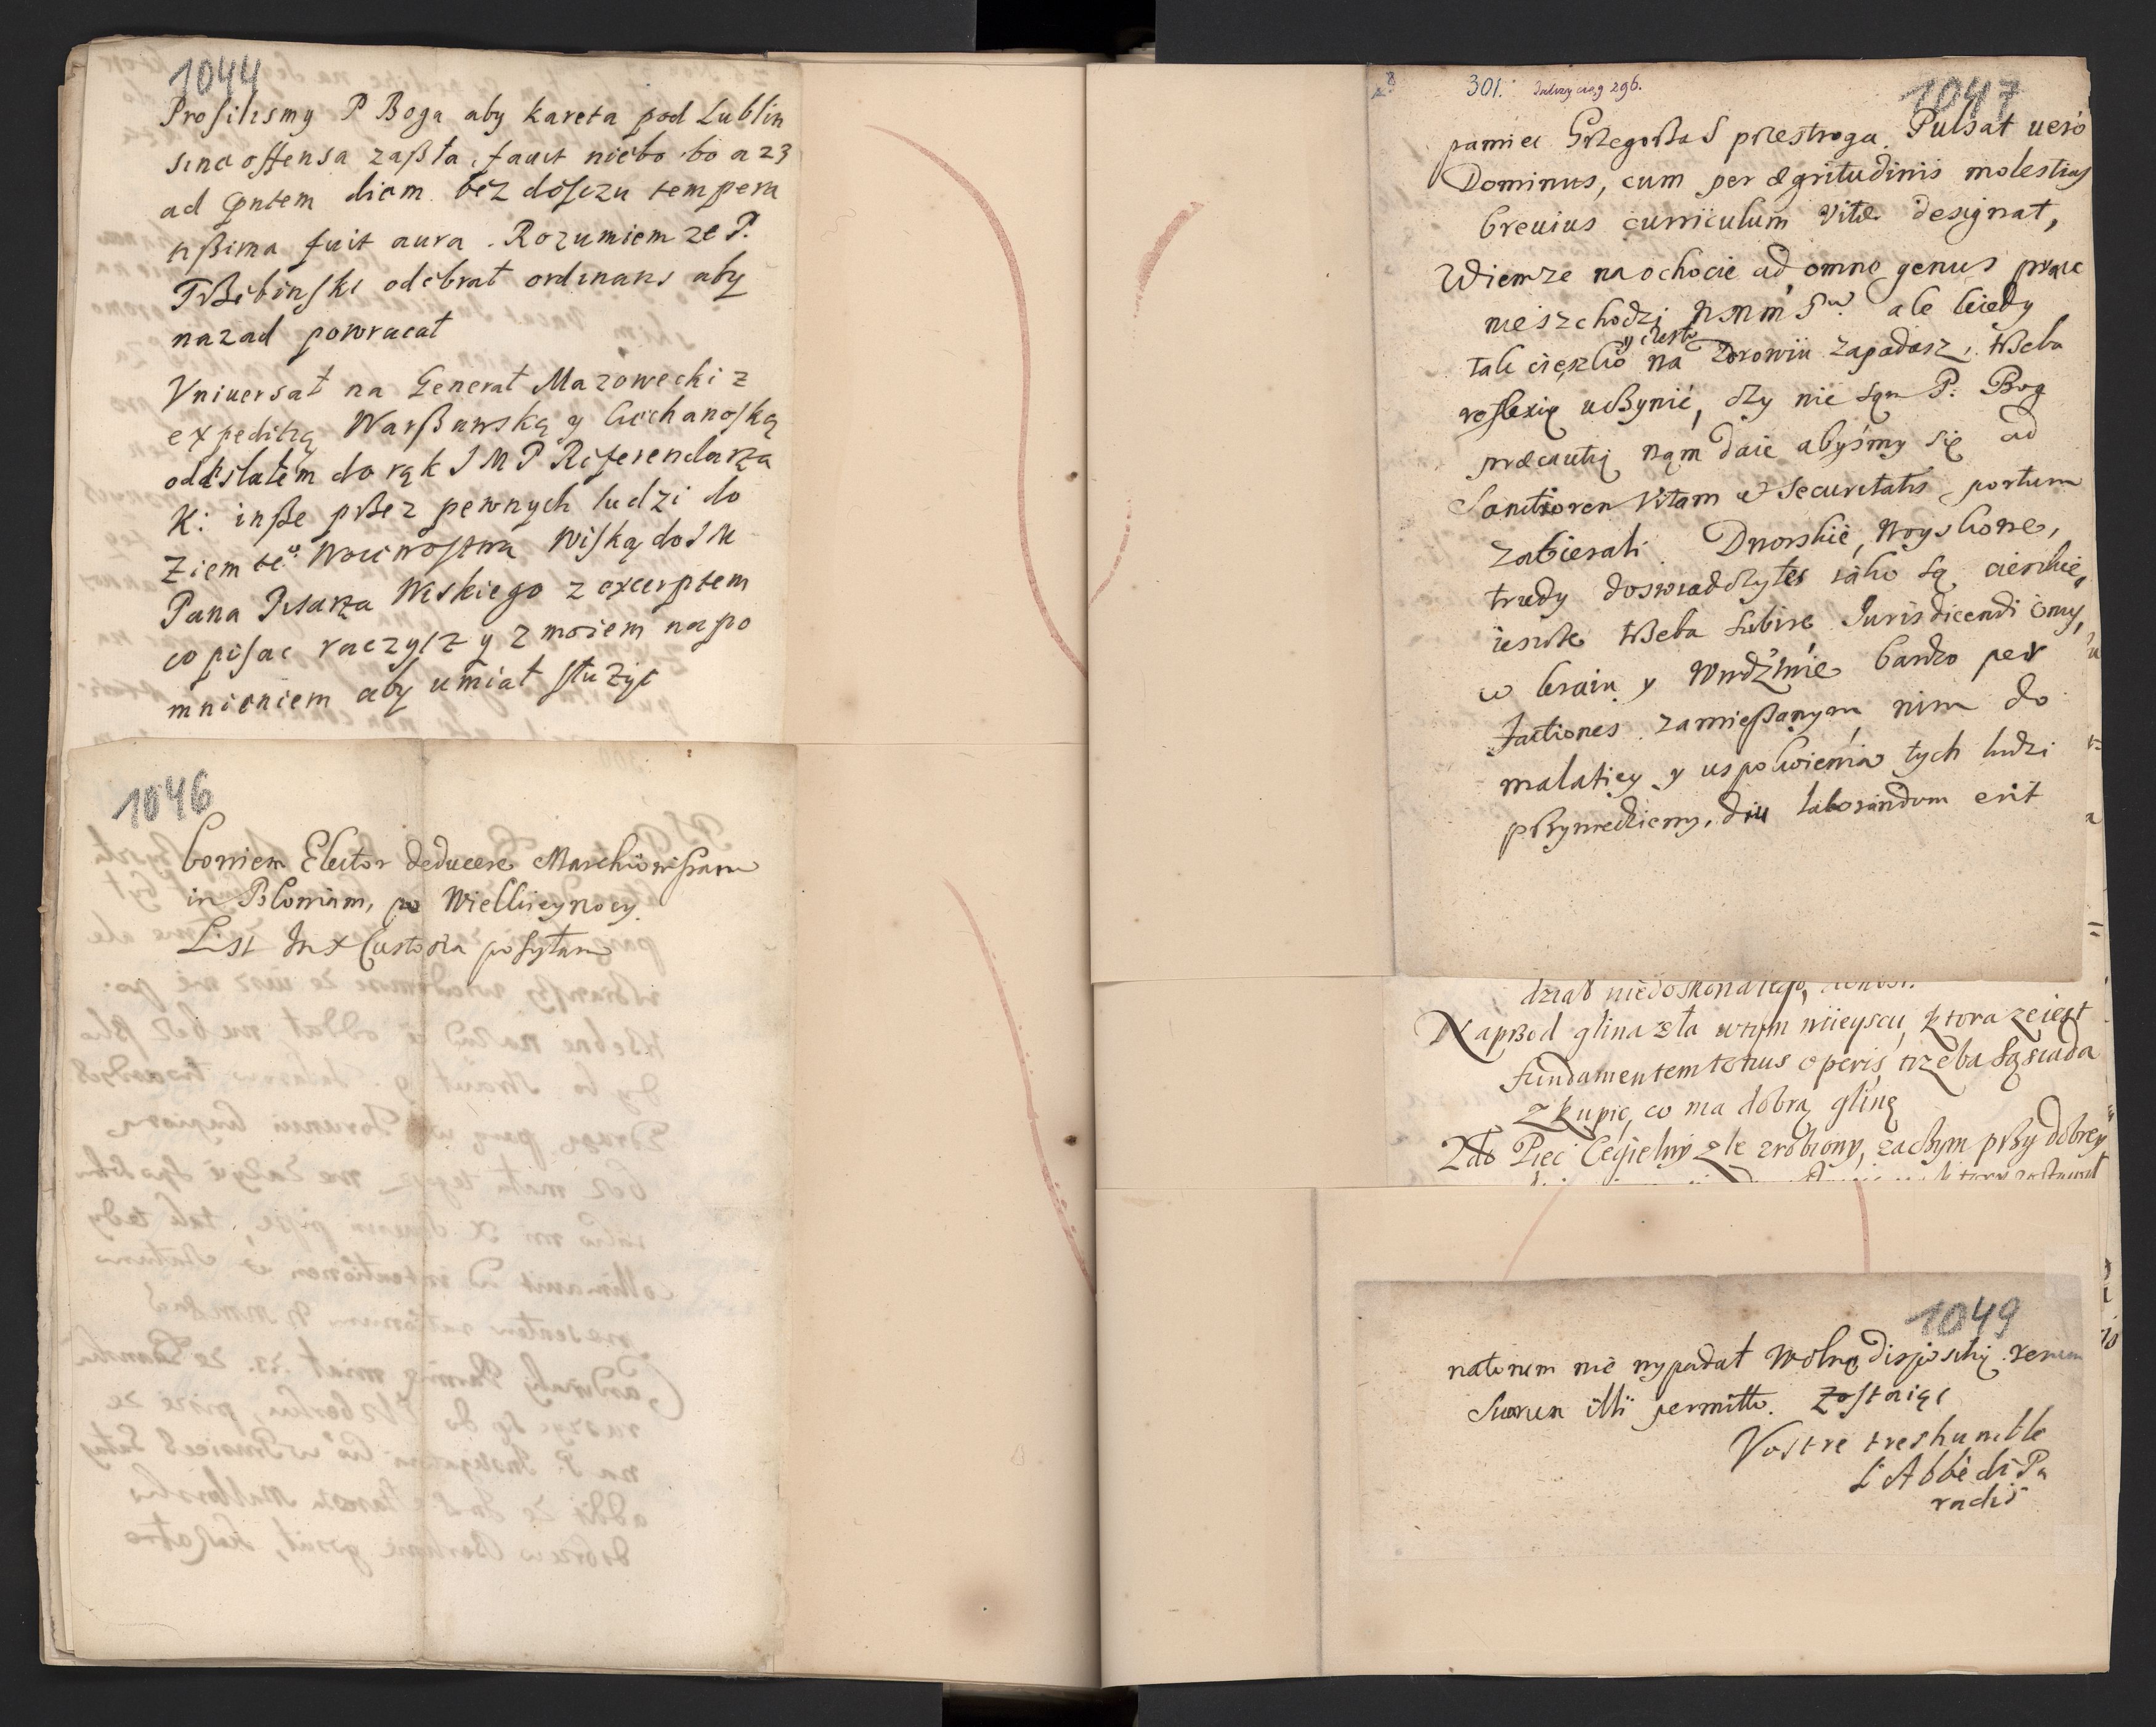 1044
Prosilismy P Boga aby kareta pod Lublin
sine offensa zaßła, fauit niebo bo a 23
ad pntem diem bez doszczu tempera
tißima fuit aura. Rozumiem ze P.
Trßebinski odebrał ordinans aby
nazad powracał
Vniuersał na Generał Mazowecki z
expeditią Warßawską y Ciechanoską
odesłałem do rąk I M P Referendarza
K: inße pßez pewnych ludzi do
Ziem te
Pana Pisarza Wiskiego z excerptem
co pisac raczysz y z moiem napo
mnieniem aby umiał służyc
1046
Elector deducere Marchionißam
in Poloniam, po Wielkieynocy.
List Custosza posyłam
301. Dalszy ciąg 296.
1047
pamiec Grzegorßa S przestroga. Pulsat uero
Dominus, cum per ægritudinis molestias
breuius curriculum vitæ designat,
Wiem ze na ochocie ad omne genus prace
nie szchodzi ale kiedy
tak cięszko y często na Zdrowiu zapadasz, tßeba
reflexią uczynić, czy nie sąm P. Bog
præcautią nąm daie abyśmy się ad
Sanctiorem Vitam et Securitatis portum
zabierali Dworskie, woyskowe,
trudy doswiadczyłes iako są cieszkie,
ieszcze tßeba subire Iurisdicendi
w kraiu y bardzo per
factiones zamießanym, nim do
y uspokoienia tych ludzi
pßywiedziemy, diu laborandum erit
dział niedoskonałego,
Naprßod glina zła wtym mieyscu, ktora ze iest
fundamentem totius operis, trzeba sąsiada
zkupic, co ma dobrą glinę
2do Piec Cegielny zle zrobiony, zaczym pßy dobrey
1049
natorum nie wypadał wolną dispositią rerum
Suarum illi permitto. Zostaiąc
Vostre treshumble
L'Abbé di Pa
radis